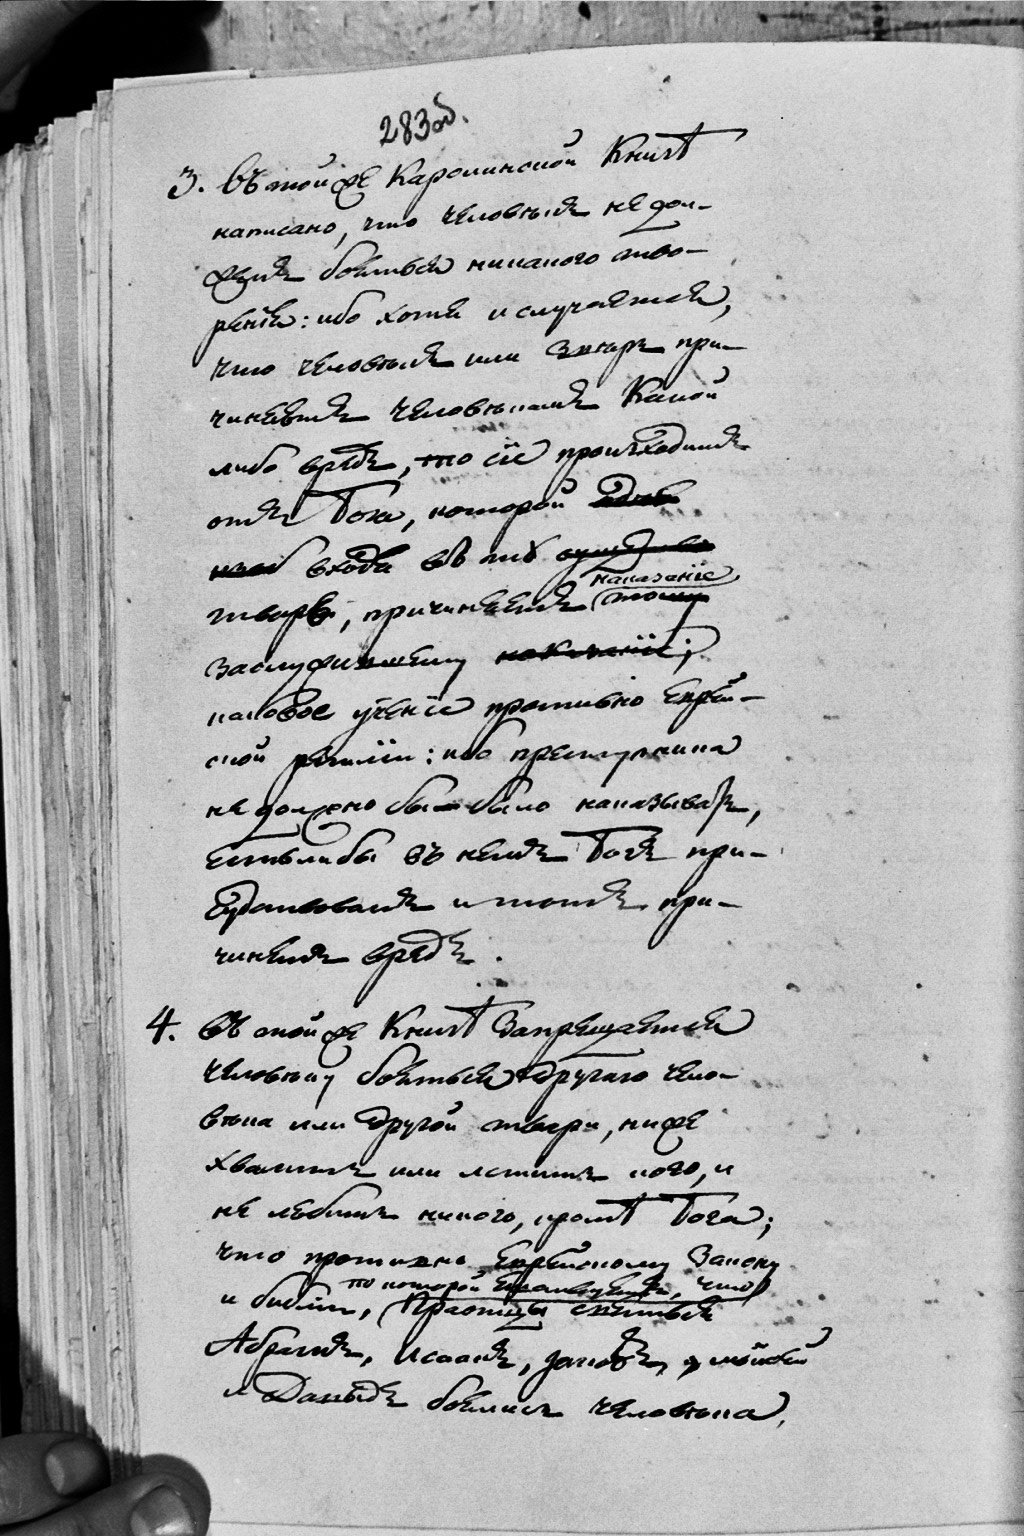 283об.
3. Въ той же Каролинской Книгѣ
написано, что человѣкъ не дол-
женъ бояться никакого тво-
ренія: ибо хотя и случается,
что человѣкъ или звѣрь при-
чиняетъ человѣкамъ какой
либо вредъ, то сіе происходитъ
отъ Бога, которой
входя въ ту
тварь, причиняетъ наказаніе
заслужившему наказаніе;
каковое ученіе противно Еврей-
ской религіи: ибо преступника
не должно бы было наказывать,
естьли бы въ немъ Богъ при-
сутствовалъ и тотъ при-
чинялъ вредъ.
4. Въ той же Книгѣ Запрещается
человѣку бояться другаго чело-
вѣка или другой твари, ниже
хвалить или льстить кого, и
не любить никого, кромѣ Бога;
что противно Еврейскому Закону
по которой что
и библіи, Праотцы
Абрамъ, Исаакъ, Яковъ, Мойсей
и Давыдъ боялись человѣка,